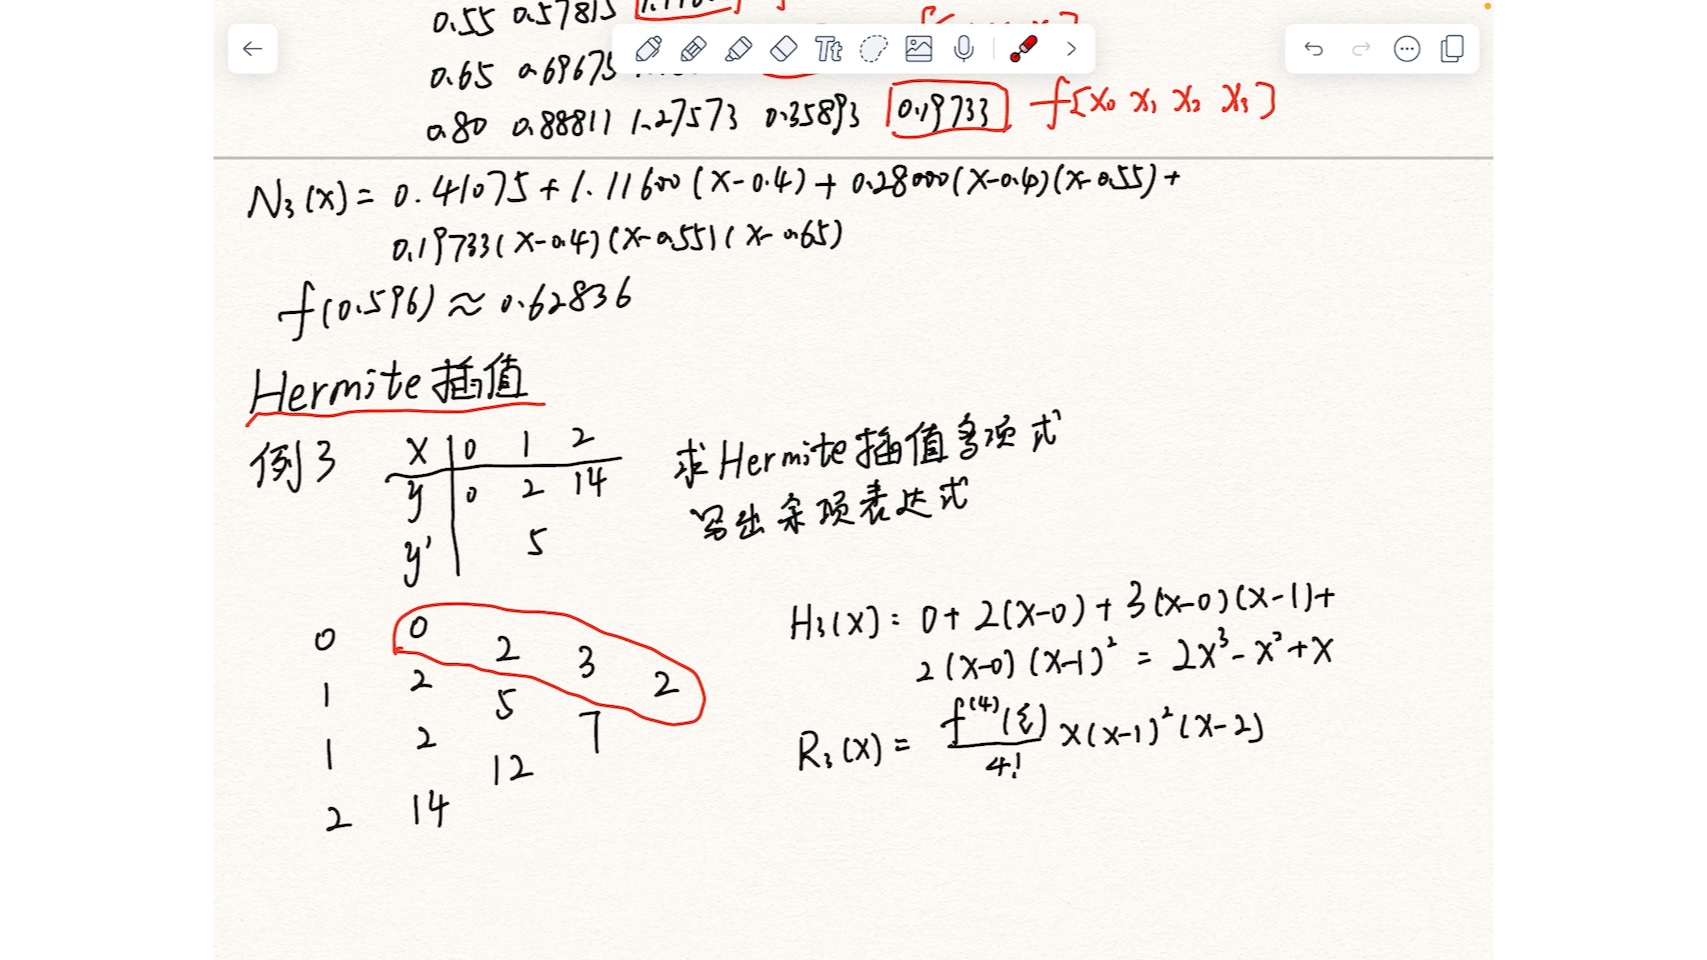 0.55 0.57815
0.65 0.69675
Tt
0.80 0.88811 1.27573 0.35893 0.19733 f[x₀ x₁ x₂ x₃]
N₃(x) = 0.41075 + 1.11600(x-0.4) + 0.28000(x-0.4)(x-0.55) +
0.19733(x-0.4)(x-0.55)(x-0.65)
f(0.596) ≈ 0.62836
Hermite插值
例3
x 0 1 2
y 0 2 14
y' 5
求Hermite插值多项式
写出余项表达式
0 0
2 3 2
1 2
5 7
1 2
12
2 14
H₃(x) = 0 + 2(x-0) + 3(x-0)(x-1) +
2(x-0)(x-1)² = 2x³ - x² + x
R₃(x) = f⁽⁴⁾(ξ)/4! x(x-1)²(x-2)